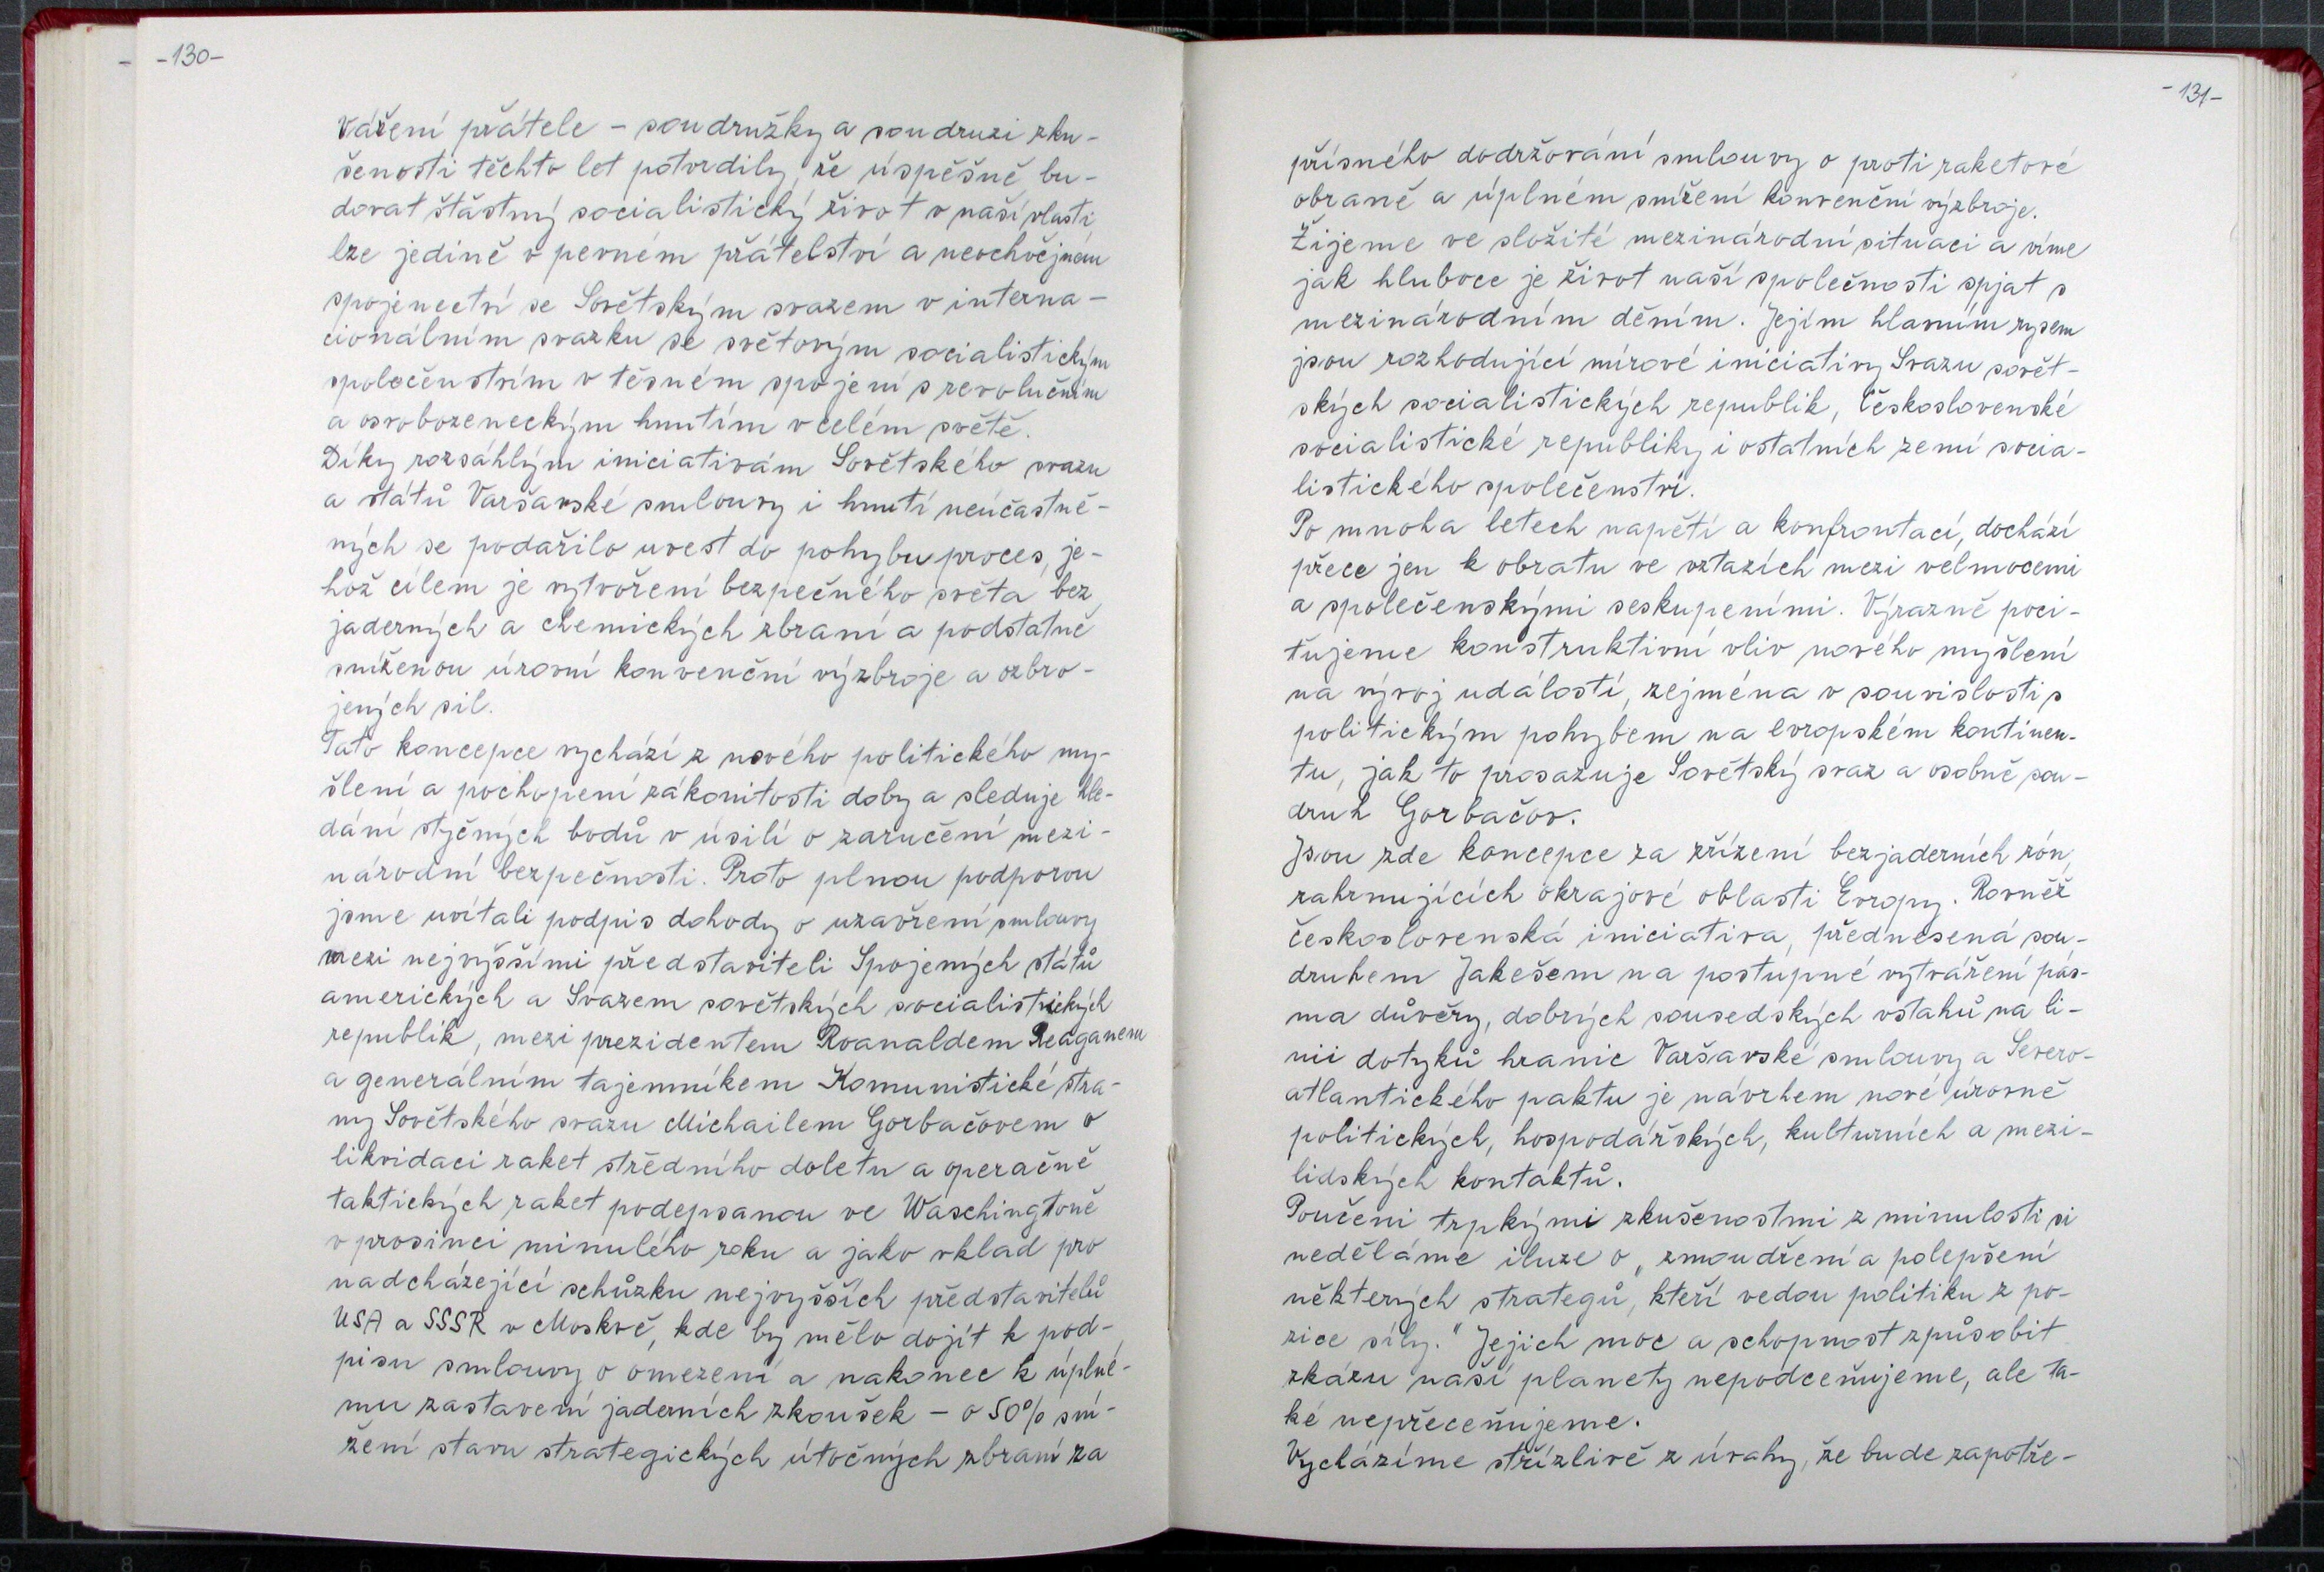 -130-
Vážení přátele - soudružky a soudruzi zku-
šenosti těchto let potvrdily, že úspěšně bu-
dovat štastný socialistický život v naší vlasti
lze jedině v pevném přátelství a neochvějném
spojenectví se Sovětským svazem v interna-
cionálním svazku se světovým socialistickým
společenstvím v těsném spojení s revolučním
a osvobozeneckým hnutím v celém světě.
Díky rozsáhlým iniciativám Sovětského svazu
a států Varšavské smlouvy i hnutí neúčastně-
ných se podařilo uvest do pohybu proces, je-
hož cílem je vytvoření bezpečného světa bez
jaderných a chemických zbraní a podstatně
sníženou úrovní konvenční výzbroje a ozbro-
jených sil.
Tato koncepce vychází z nového politického my-
šlení a pochopení zákonitosti doby a sleduje hle-
dání styčných bodů v úsilí o zaručení mezi-
národní bezpečnosti. Proto plnou podporou
jsme uvítali podpis dohody o uzavření smlouvy
mezi nejvyššími představiteli Spojených států
amerických a Svazem sovětských socialistických
republik, mezi prezidentem Roanaldem Reaganem
a generálním tajemníkem Komunistické stra-
ny Sovětského svazu Michailem Gorbačovem o
likvidaci raket středního doletu a operačně
taktických raket podepsanou ve Waschingtoně
v prosinci minulého roku a jako vklad pro
nadcházející schůzku nejvyšších představitelů
USA a SSSR v Moskvě, kde by mělo dojít k pod-
pisu smlouvy o omezení a nakonec k úplné-
mu zastavení jaderních zkoušek - o 50% sní-
žení stavu strategických útočných zbraní za
-131-
přísného dodržování smlouvy o proti raketové
obraně a úplném snížení konvenční výzbroje.
Žijeme ve složité mezinárodní situaci a víme
jak hluboce je život naší společnosti spjat s
mezinárodním děním. Jejím hlavním rysem
jsou rozhodující mírové iniciativy Svazu sovět-
ských socialistických republik, Československé
socialistické republiky i ostatních zemí socia-
listického společenství.
Po mnoha letech napětí a konfrontací, dochází
přece jen k obratu ve vztazích mezi velmocemi
a společenskými seskupeními. Výrazně poci-
ťujeme konstruktivní vliv nového myšlení
na vývoj událostí, zejména v souvislosti s
politickým pohybem na evropském kontinen-
tu, jak to prosazuje Sovětský svaz a osobně sou-
druh Gorbačov.
Jsou zde koncepce za zřízení bezjaderních zón,
zahrnujících okrajové oblasti Evropy. Rovněž
československá iniciativa, přednesená sou-
druhem Jakešem na postupné vytváření pás-
ma důvěry, dobrých sousedských vstahů na li-
nii dotyků hranic Varšavské smlouvy a Severo-
atlantického paktu je návrhem nové úrovně
politických, hospodářských, kulturních a mezi-
lidských kontaktů.
Poučeni trpkými zkušenostmi z minulosti si
neděláme iluze o „zmoudření a polepšení
některých strategů, kteří vedou politiku z po-
zice síly." Jejich moc a schopnost způsobit
zkázu naší planety nepodceňujeme, ale ta-
ké nepřeceňujeme.
Vycházíme střízlivě z úvahy, že bude zapotře-